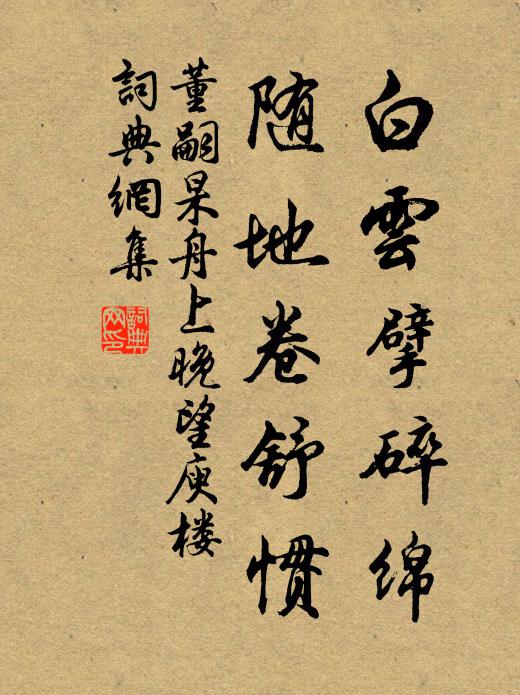 白雲擘碎綿
随地卷舒慣
董嗣杲舟上晚望庾楼
詞典網集
詞典網印